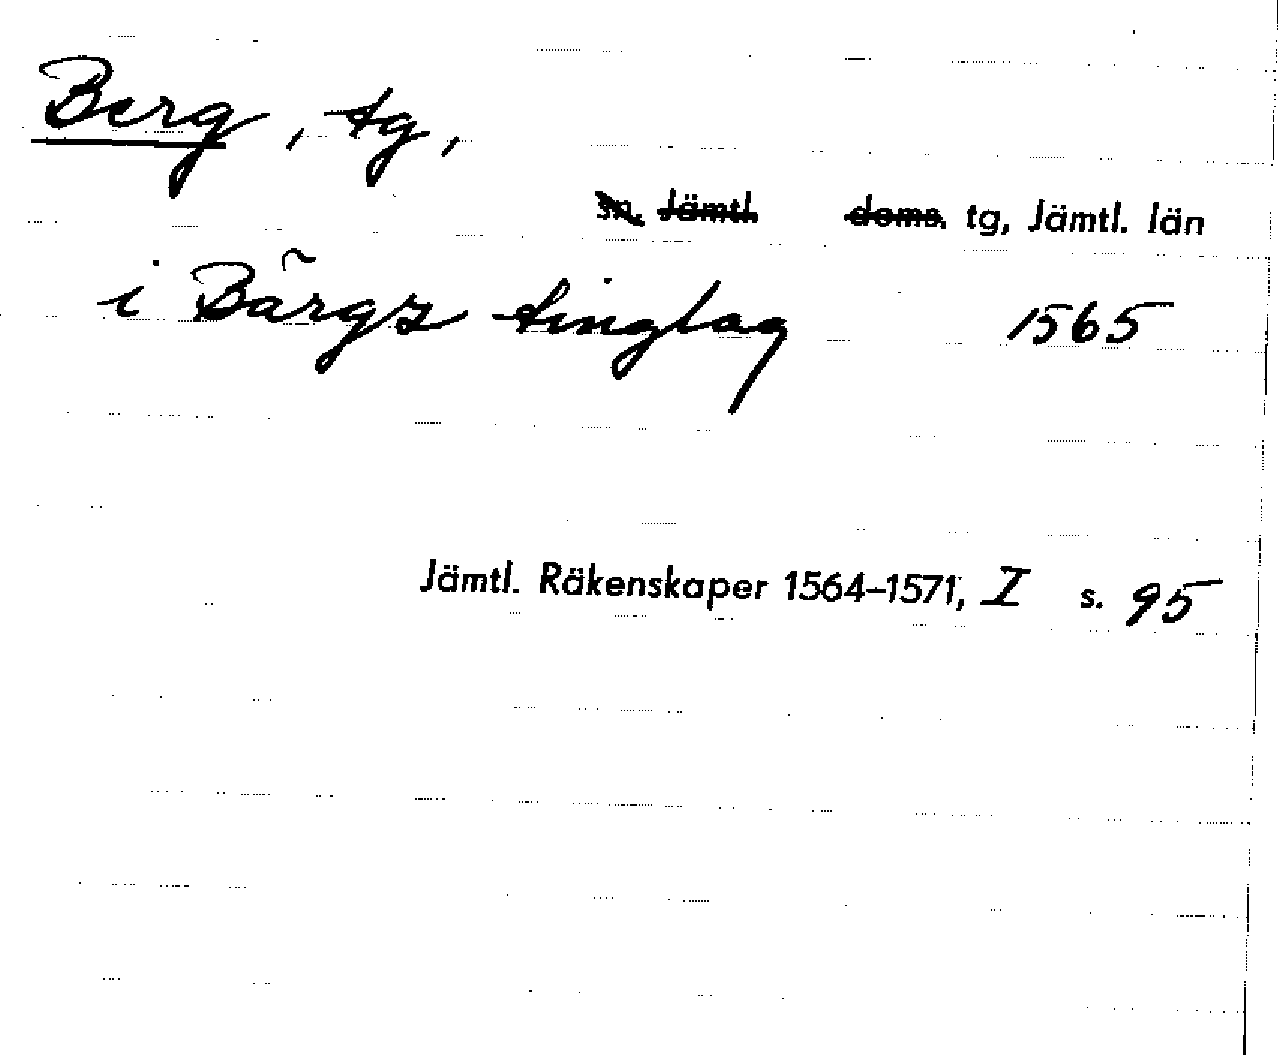 Berg, tg,
sn. Jämtl. doms. tg, Jämtl. län
i Bärgz tinglag 1565
Jämtl. Räkenskaper 1564–1571, I s. 95